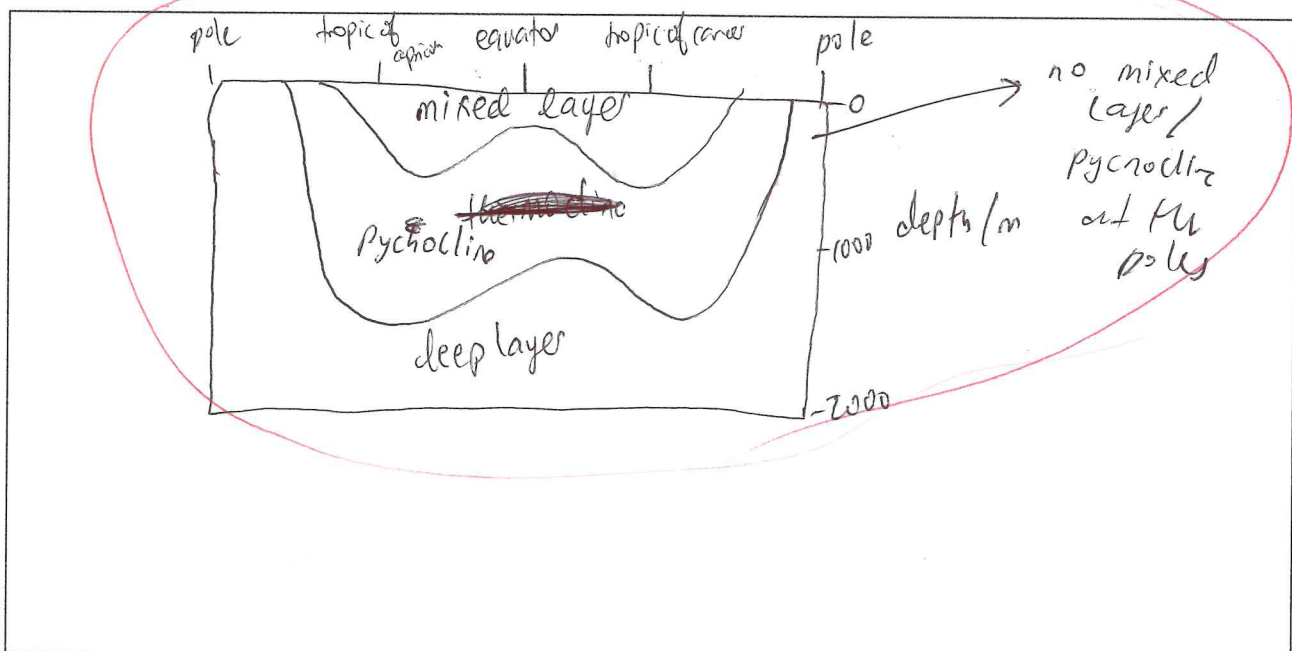 pole tropic of capricorn equator tropic of cancer pole
mixed layer
0
no mixed
layer/
pycnocline
at the
poles
thermocline
Pycnocline
-1000 depth/m
deep layer
-2000